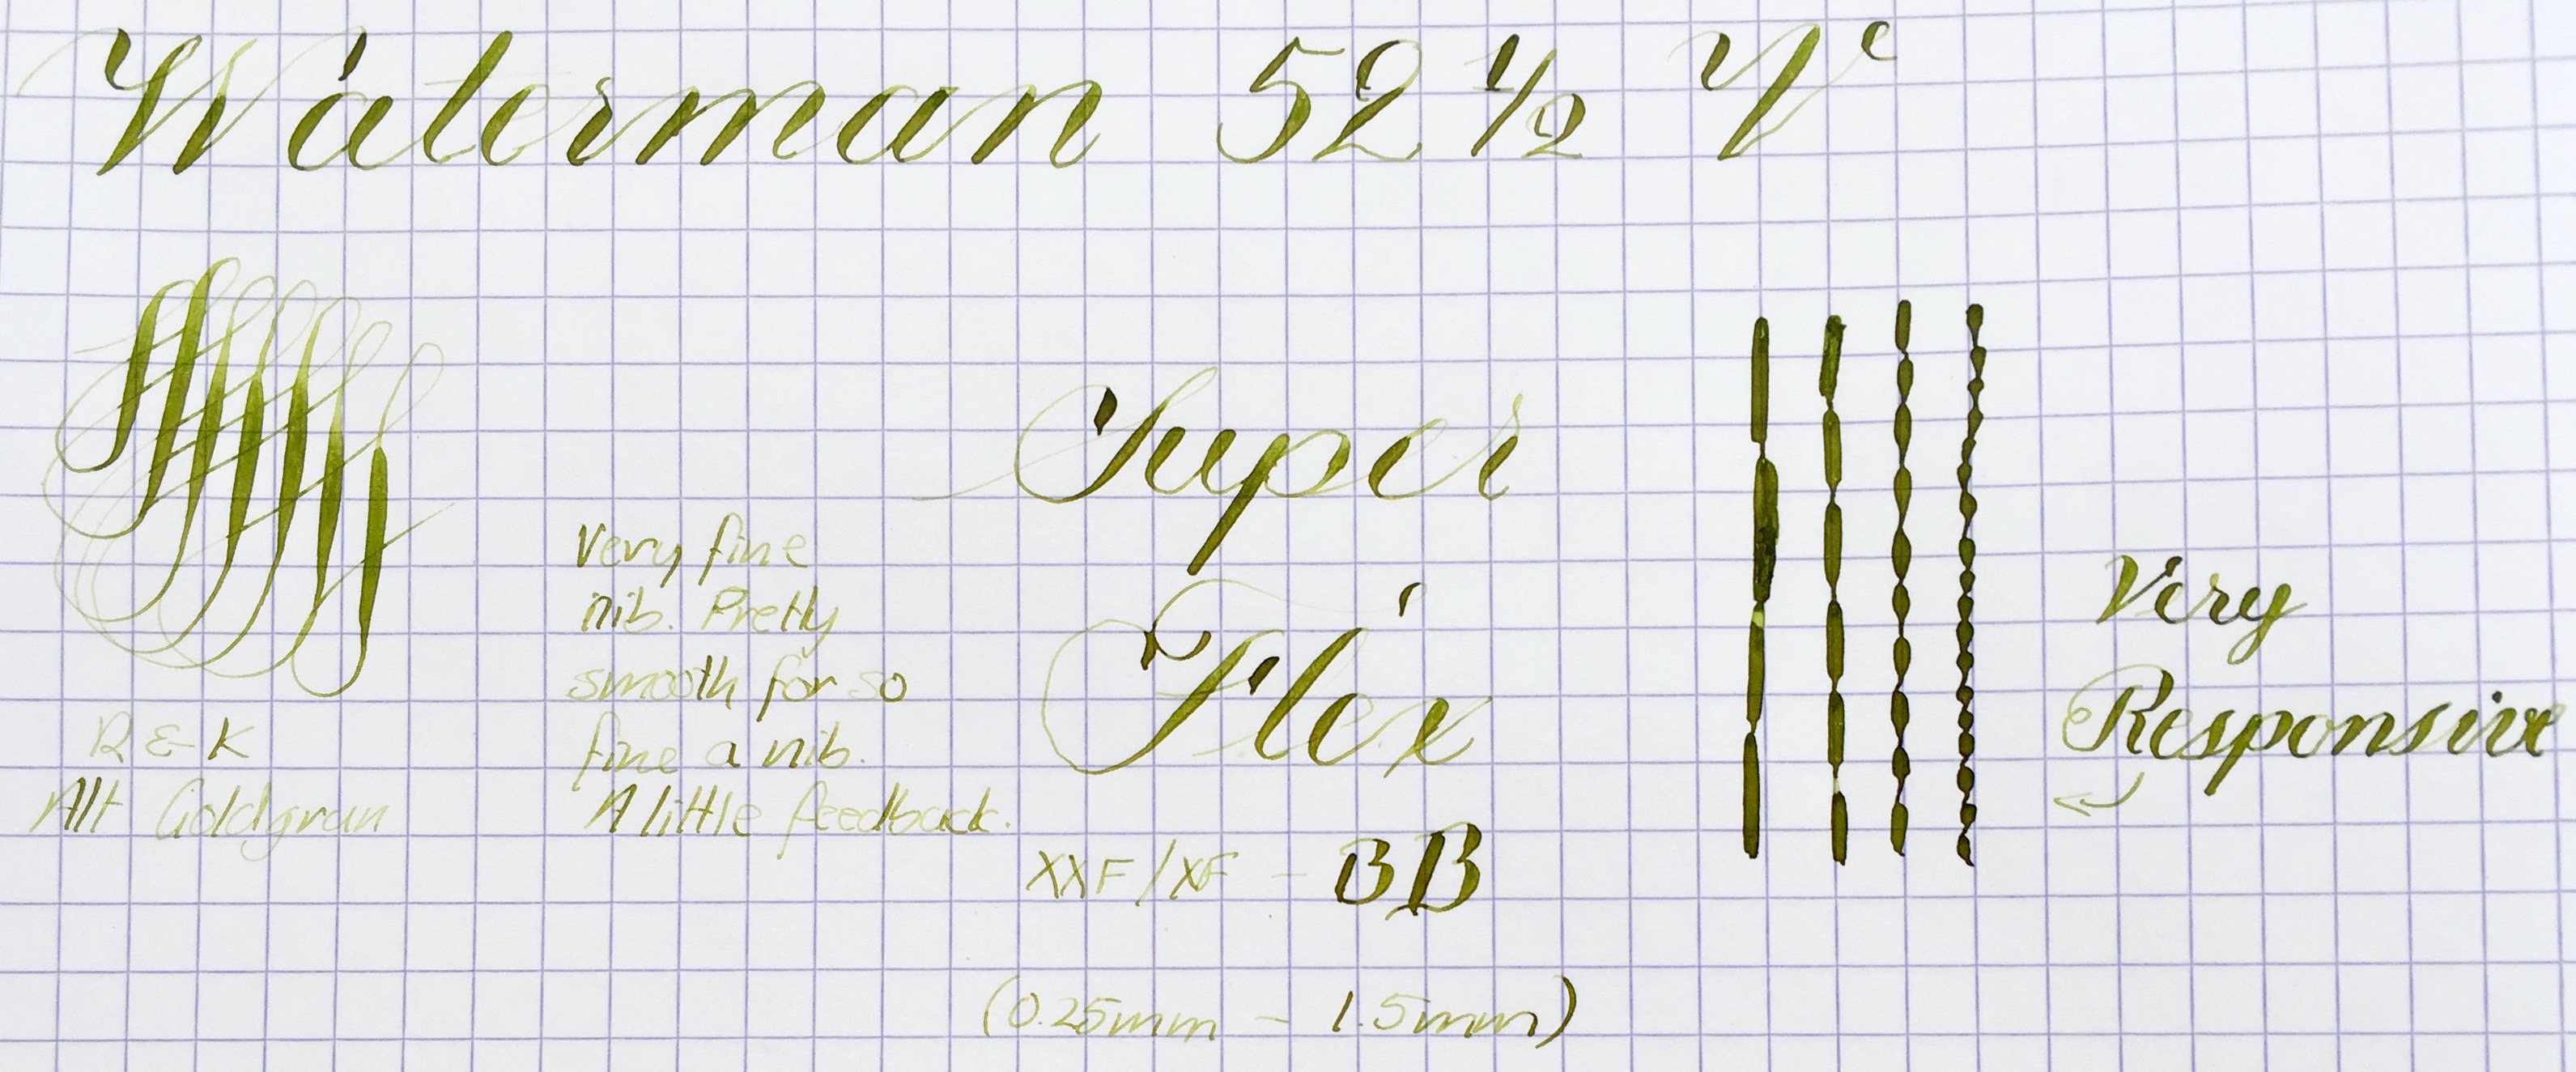 Waterman 52 1/2 V
Super
Flex
XXF/XF - BB
(0.25mm - 1.5mm)
Very fine
nib. Pretty
smooth for so
fine a nib.
A little feedback.
R & K
Alt Goldgrun
Very
Responsive